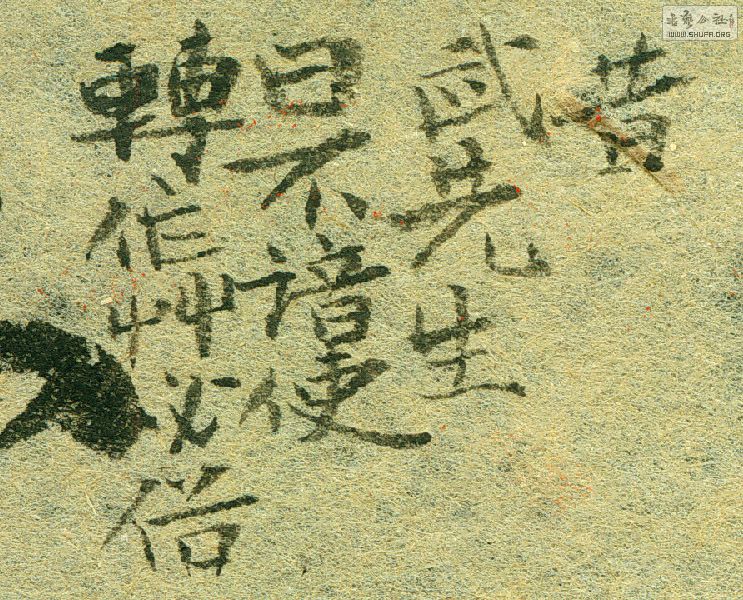 昔
武先生
曰不諳便
轉作艸必俗
书艺公社
WWW.SHUFA.ORG